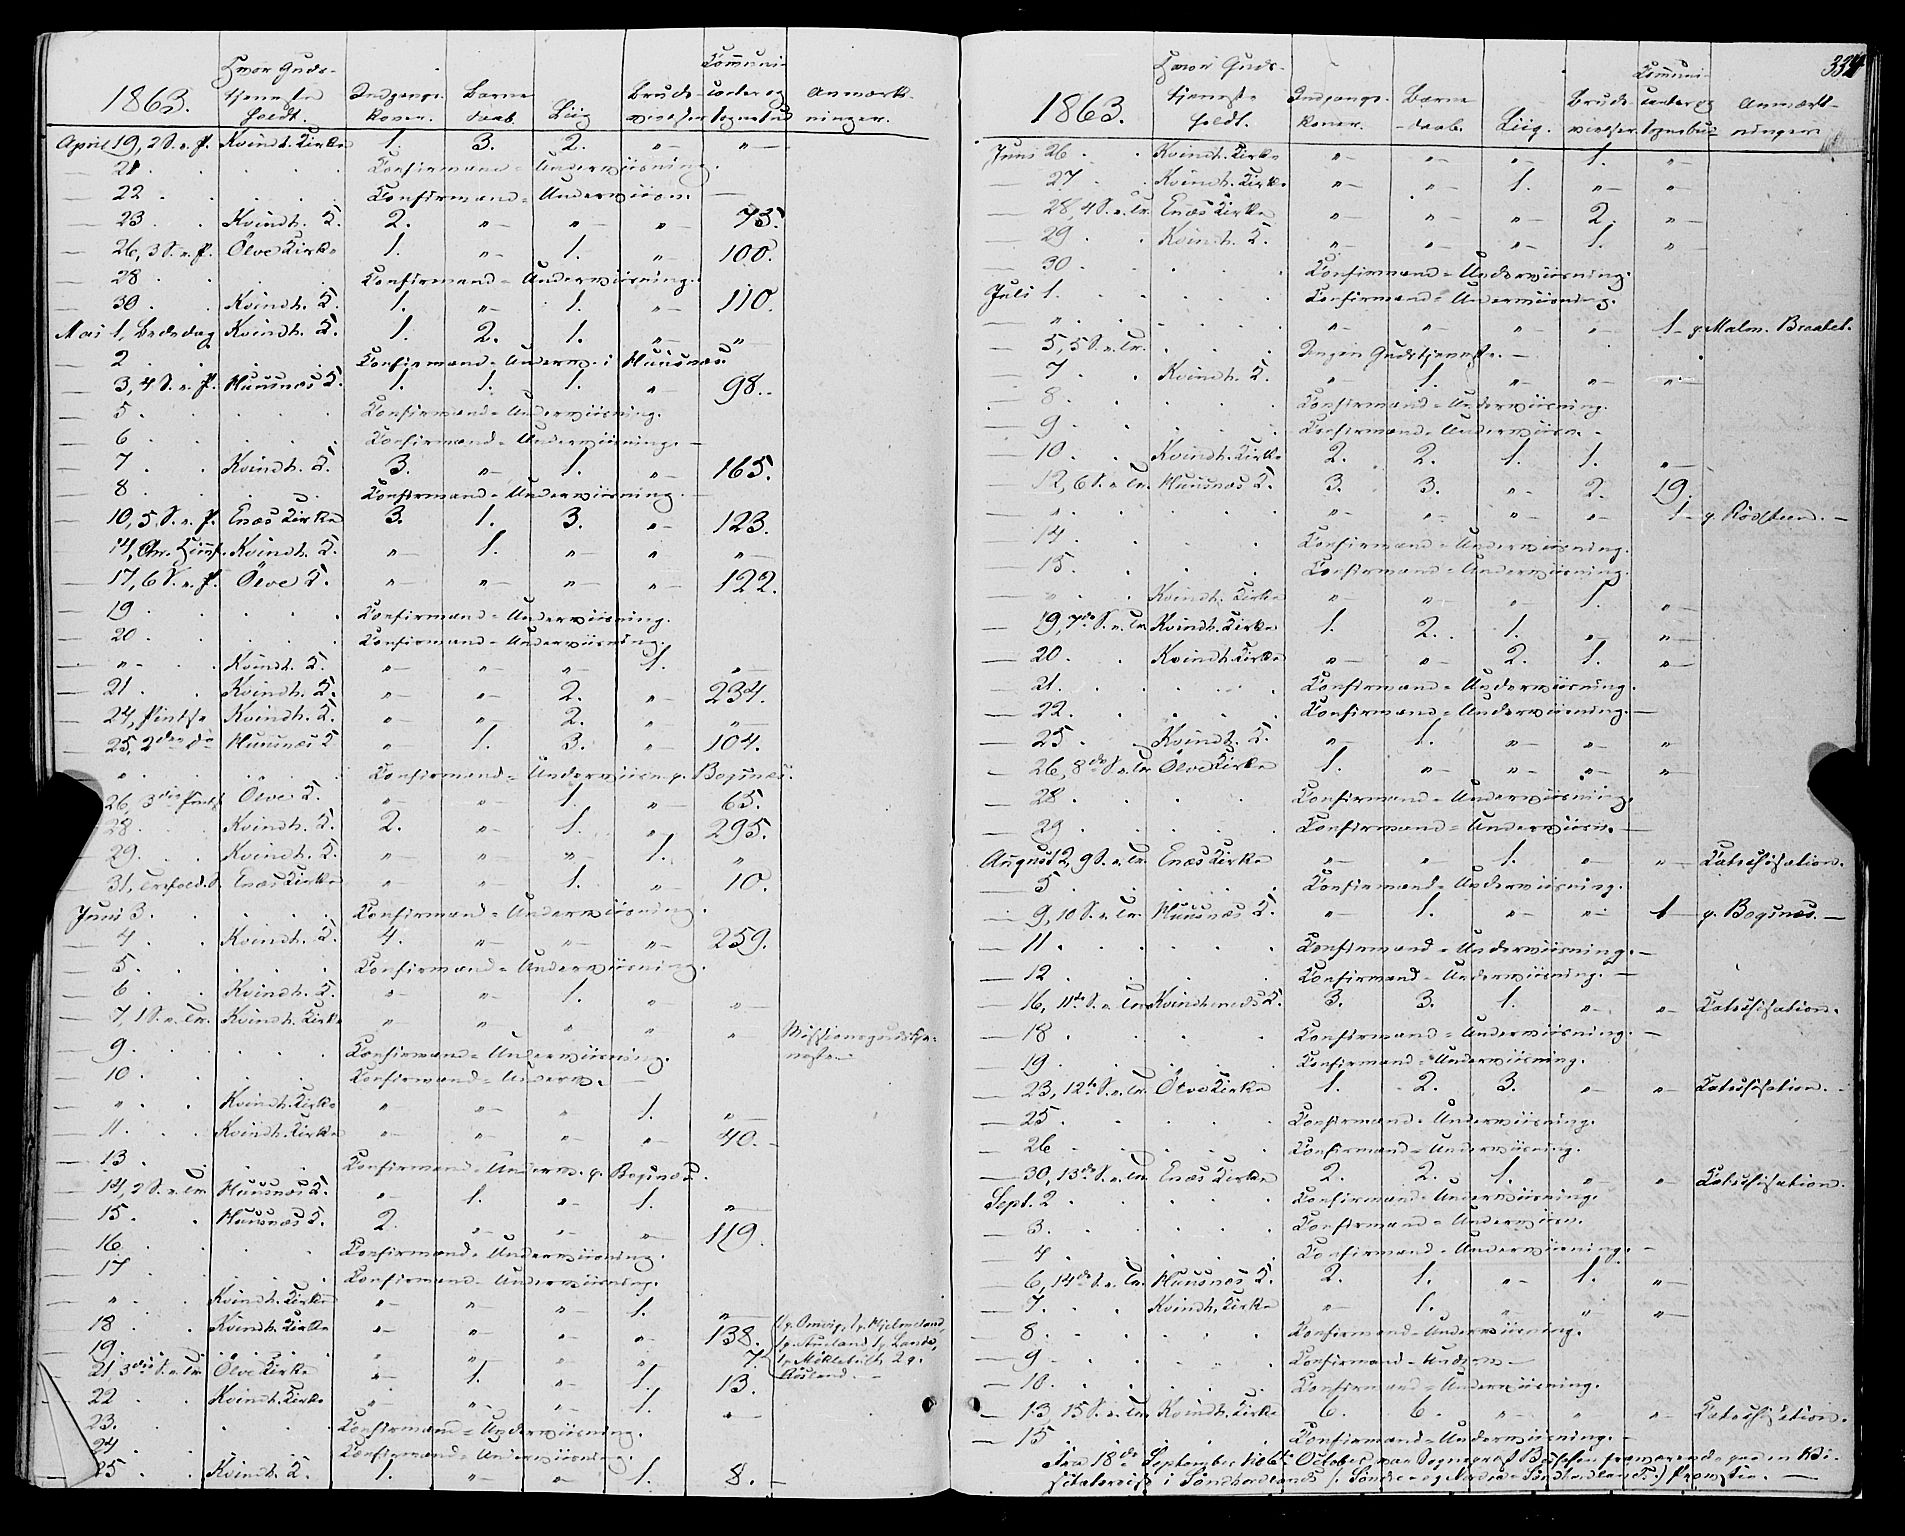 1863. Hvor Guds- tjeneste holdt. Indgangs- koner. Barne- daab. Liig Brude- vielser Communi- canter og Sognebud Anmærk- ninger.
April 19, 2 S. e. P. Kvindh. Kirke 1. 3. 2. „— „—
— 21 . . . Confirmand-Underviisning.
— 22 . . . Confirmand-Underviisn. —
— 23 . . Kvindh. K. 2. „— „— „— 73.
— 26, 3 S. e. P. Ølve Kirke 1. „— 1. „— 100.
— 28 . . . Confirmand-Underviisning.
— 30 . . Kvindh. K. 1. „— 1. „— 110.
Mai 1, Bededag Kvindh. K. 1. 2. 1. „— „—
— 2 . . . Confirmand-Underv. i Huusnæs.
— 3, 4 S. e. P. Huusnæs K. 1. 1. 1. „— 98.
— 5 . . . Confirmand-Underviisning.
— 6 . . . Confirmand-Underviisning. —
— 7 . . Kvindh. K. 3. „— 1. „— 165.
— 8 . . . Confirmand-Underviisning. —
— 10, 5 S. e. P. Enæs Kirke 3. 1. 3. „— 123.
— 14, Chr. Himf. Kvindh. K. „— 1. „— „— „—
— 17, 6 S. e. P. Ølve K. „— „— „— „— 122.
— 19 . . . Confirmand-Underviisning.
— 20 . . . Confirmand-Underviisning.
— „— . . Kvindh. K. „— „— „— 1. „—
— 21 . . Kvindh. K. „— „— 2. „— 234.
— 24, Pintse Kvindh. K. „— „— 2. „— „—
— 25, 2den do Huusnæs K „— 1. 3. „— 104.
„ . . . Confirmand-Underviisn. p. Bogsnæs.
26, 3die Pints Ølve K. „— „— 1. „— 65.
28 . . Kvindh. K. 2. „— 1. „— 295.
29 . . Kvindh. K. „— „— „— 1. „
31, Trefold. S. Enæs Kirke „— „— 1. „— 10.
Juni 3 . . . Confirmand-Underviisning.
— 4 . . Kvindh. K. 4. „— „— „— 259.
— 5 . . . Confirmand-Underviisning.
— 6 . . Kvindh. K. „— „— 1. „— „—
— 7, 1 S. e. Tr. Kvindh. Kirke „— „— „— „— „— Missionsgudstje-
neste.—
— 9 . . . Confirmand-Underviisning.
— 10 . . . Confirmand-Underv. —
— „ . . Kvindh. Kirke „— „— „ 1. „—
— 11 . . Kvindh. Kirke „— „— „— „— 40.
— 13 . . . Confirmand-Underv. p. Bogsnæs.
— 14, 2 S. e. Tr. Huusnæs K. „— 1. „— 1. „—
— 15 . . Huusnæs K. 2. „— „— „— 119.
— 16 . . . Confirmand-Underviisning.
— 17 . . . Confirmand-Underviisning.
— „ . . Kvindh. Kirke „— „— „— 1. „—
— 18 . . Kvindh. Kirke „— „— „— „— 138. 1 p. Hjelmeland,
— 19 . . . „ „ „— „ 7
— 21 3die S. e. Tr. Ølve Kirke „— 1. „— 1. 13.
— 22 . . Kvindh. Kirke „— „— „— 1. „—
— 23 . . . Confirmand-Underviisning.
24 . . . Confirmand-Underviisning.
25 . . Kvindh. K. 1. „— „— 1. 8. —
334
1863. Hvor Guds- tjeneste holdt. Indgangs- koner. Barne- daab. Liig. Brude- vielser. Communi- canter og Sognebud Anmærk- ninger
Juni 26 . . Kvindh. Kirke „— „— „— 1. „—
— 27 . . Kvindh. Kirke „— „— 1. „— „—
— 28, 4 S. e. Tr. Enæs Kirke „— „— „— 2. „—
— 29 . . Kvindh. K. „— „— „— 1. „—
— 30 . . . Confirmand-Underviisning.
Juli 1 . . . Confirmand-Underviisning.
— „ . . . „— „— „— „— 1 — p. Malm. Braatet.
— 5, 5 S. e. Tr. . . Ingen Gudstjeneste. —
— 7 . . Kvindh. K. „— 1. „— „— „—
— 8 . . . Confirmand-Underviisning.
— 9 . . . Confirmand-Underviisn. —
— 10 . . Kvindh. Kirke 2. 2. 1. 1. „—
— 12, 6 S. e. Tr. Huusnæs K. 3. 3. „— 2. 19.
— „ . . . „— „— „— „— 1 — p. Rødsteen. —
— 14 . . . Confirmand-Underviisning.
— 15 . . . Confirmand-Underviisning.
— „ . . Kvindh. Kirke „— „— „— 1. „—
— 19, 7de S. e. Tr. Kvindh. Kirke 1. 2. 1. „— „—
— 20 . . Kvindh. Kirke „— „— 2. 1. „—
— 21 . . . Confirmand-Underviisning.
— 22 . . . Confirmand-Underviisning. —
— 25 . . Kvindh. K. „— 1. „— „— „—
— 26, 8de S. e. Tr. Ølve Kirke 1. „— „— „— „—
— 28 . . . Confirmand-Underviisning.
— 29 . . . Confirmand-Underviisn. —
August 2, 9 S. e. Tr. Enæs Kirke „— „— 1. „— „— Catechisation.
— 5 . . . Confirmand-Underviisning.
— 9, 10 S. e. Tr. Huusnæs K. „— 1. „— „— 1 — p. Bogsnæs. —
— 11 . . . Confirmand-Underviisning. —
— 12 . . . Confirmand-Underviisning. —
— 16, 11te S. e. Tr. Kvindherreds K. 3. 3. 1. „— „— Catechisation.
— 18 . . . Confirmand-Underviisning. —
— 19 . . . Confirmand-Underviisning.
— 23, 12te S. e. Tr. Ølve Kirke 1. 2. 3. „— „— Catechisation. —
— 25 . . . Confirmand-Underviisning.
— 26 . . . Confirmand-Underviisning.
— 30, 13de S. e. Tr. Enæs Kirke 2. 2. 1. „— „— Catechisation.
Sept. 2 . . . Confirmand-Underviisning.
— 3 . . . Confirmand-Underviisn.
— 4 . . . Confirmand-Underviisning. —
— 6, 14de S. e. Tr. Huusnæs K. 2. 1. „— 1. „—
— 7 . . Kvindh. Kirke „— 1. „— „— „—
— 8 . . . Confirmand-Underviisning.
— 9 . . . Confirmand-Underv. —
— 10 . . . Confirmand-Underviisning.
— 13, 15 S. e. Tr. Kvindh. Kirke 6. 6. „— „ „— Catechisation.
— 15 . . . Confirmand-Underviisning. —
Fra 18de September til 6te October var Sognepræst fraværende paa en Vi-
sitatsreise i Søndhordlands Provstie. —